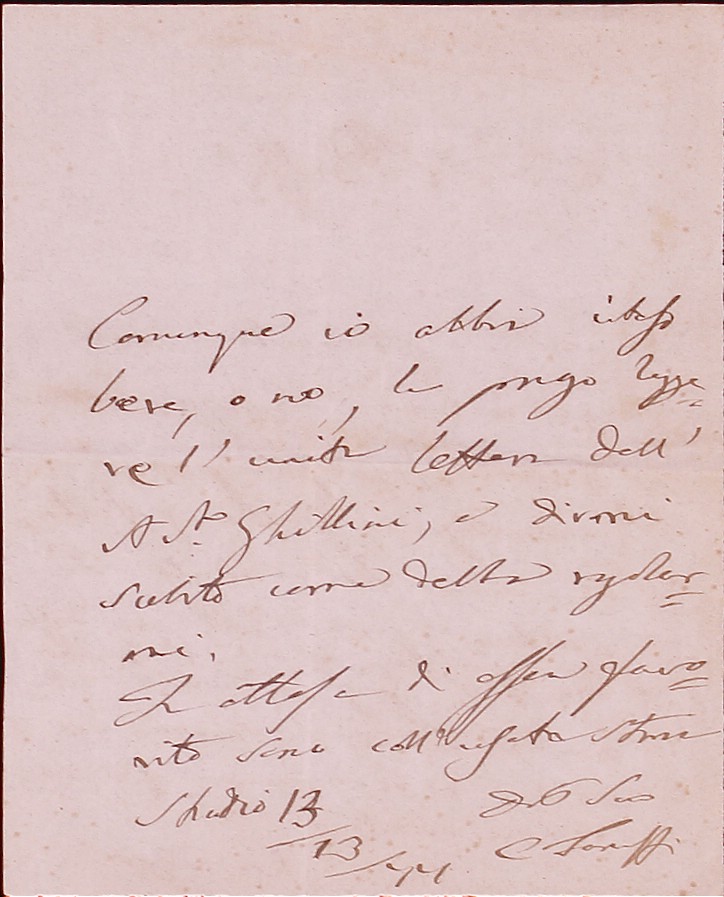 Comunque io abbia inteso
bene, o no, la prego legge=
re l'unita lettera dell'
A St. Ghillini, e dirmi
subito come debba regolar=
mi.
In attesa di essere favo=
rito sono coll'usata stima
Studio 13
13
Suo